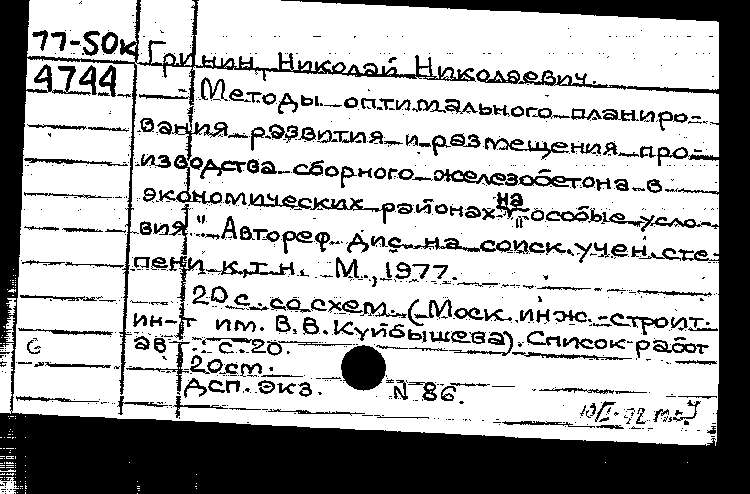 77-50к Гринин, Николай Николаевич.
4744
Методы оптимального планиро-
вания развития и размещения про-
изводства сборного железобетона в
экономических районах на "особые усло-
вия" Автореф. дис. на соиск. учен. сте-
пени к.т.н. М., 1977.
20 с. со схем. (Моск. инж.-строит.
ин-т им. В.В. Куйбышева). Список работ
авт.: с. 20.
20 ст.
Дсп. экз. N 86.